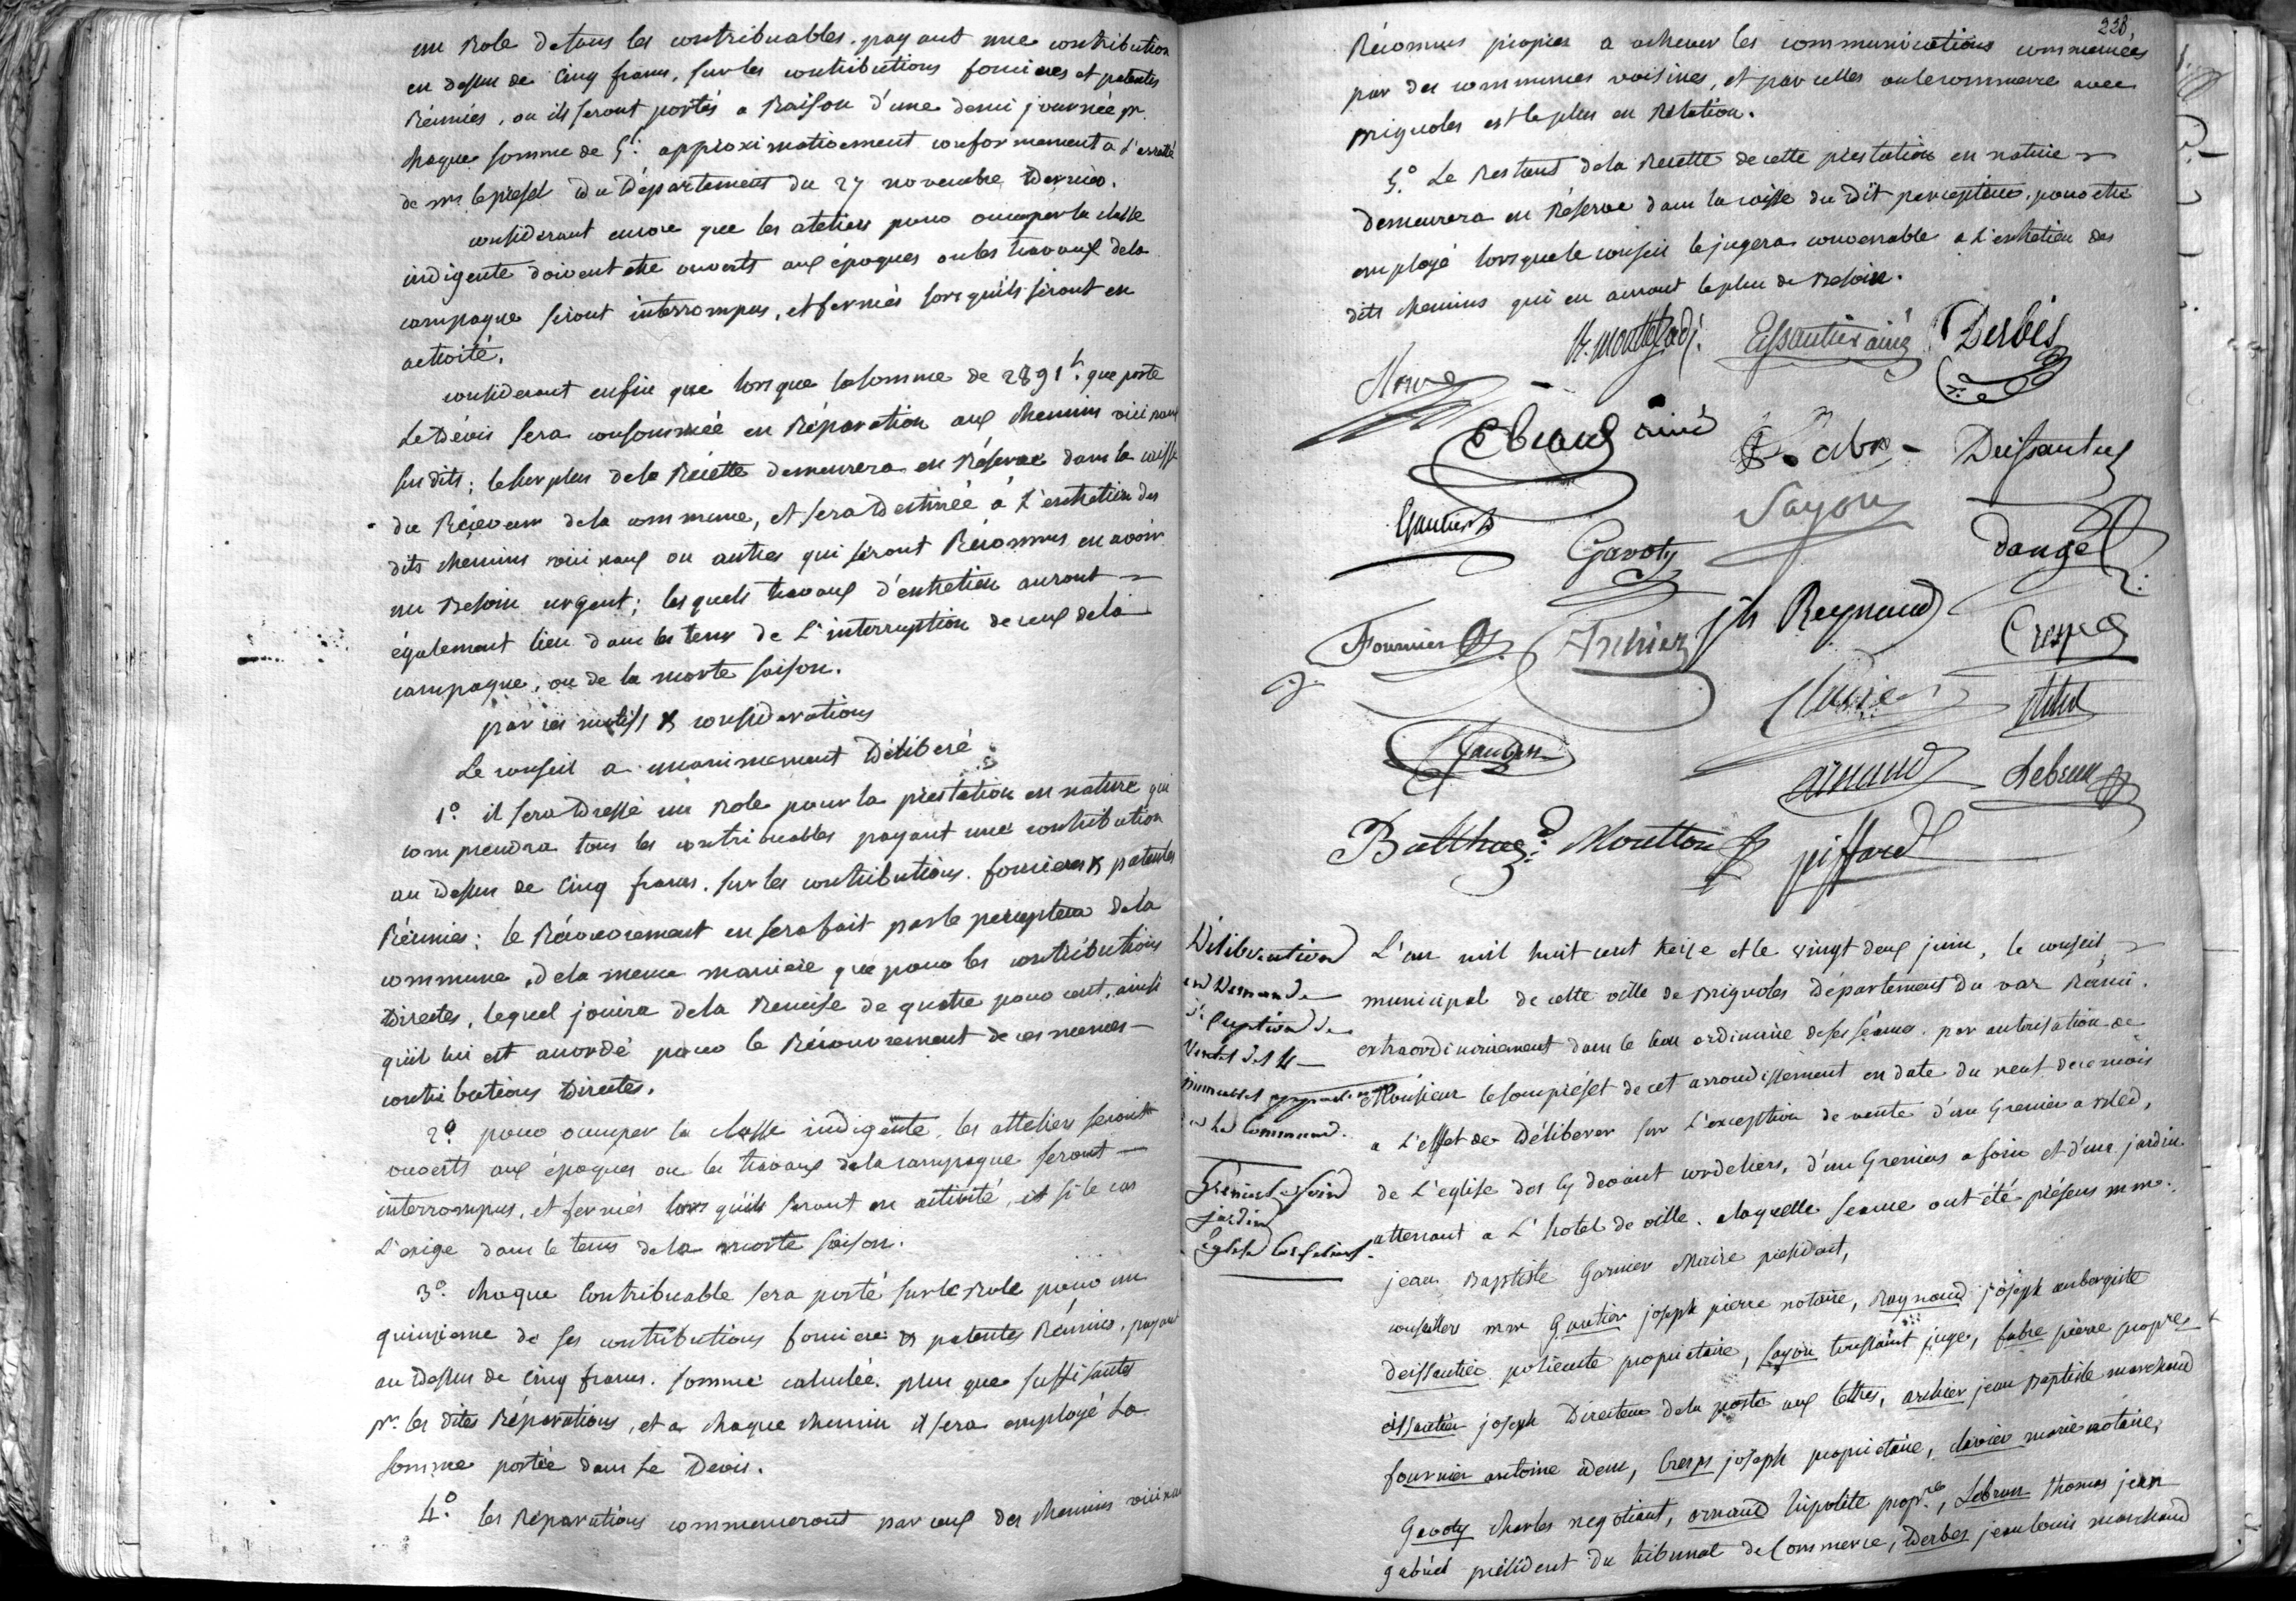 un Role de tous les contribuables payant une contribution
au dessus de Cinq francs, sur les contributions foncieres et patentes
Réunies, ou ils seront portés a Raison d'une demi journée pr.
chaque somme de 5f. approximativement conformement a l'arrêté
de mr. le prefet Du Département du 27 novembre Dernier.
considerant encore que les ateliers pour occuper la classe
indigente doivent etre ouverts aux époques ou les travaux de la
campagne seront interrompus, et fermés lors qu'ils seront en
activité.
considerant enfin que lors que la somme de 2891f. que porte
Le Dévis sera consommée en Réparation aux chemins vicinaux
sus dits; le surplus de la Récette demeurera en Réserve dans la caisse
du Réçeveur de la commune, et sera Destinée à L'entretien des
dits chemins vicinaux ou autres qui seront Réconnus en avoir
un Besoin urgent; les quels travaux d'entretien auront
également lieu dans les tems de L'interruption de ceux de la
campagne, ou de la morte saison.
par ces motifs & considerations
Le conseil a unanimement Déliberé
1.º il sera Dressé un Role pour la prestation en nature qui
comprendra tous les contribuables payant une contribution
au Dessus de Cinq francs. sur les contributions. foncieres & patentes
Réunies; le Récouvrement en sera fait par le percepteur de la
commune, de la meme maniere que pour les contributions
Directes, lequel jouira de la Remise de quatre pour cent, ainsi
qu'il lui est accordé pour le Récouvrement de ces memes
contributions Directes.
2º pour occuper la classe indigente, les atteliers seront
ouverts aux époques ou les travaux de la campagne seront
interrompus, et fermés lors qu'ils seront en activité, et si le cas
L'exige dans le tems de la morte saison.
3º. chaque Contribuable sera porté sur le Role pour un
quinzieme de ses contributions fonciere & patentes Réunies, payant
au Dessus de Cinq francs. somme calculée plus que suffisante
pr. les dites Réparations, et a chaque chemin il sera employé La
somme portée dans Le Devis.
4.º les Réparations commenceront par ceux des chemins vicinaux
228
Réconnus propres a achever les communications commencées
par des communes voisines, et par celles ou le commerce avec
Brignoles est le plus en Rélation.
5.º Le Restant de la Recette de cette prestation en nature
demeurera en Réserve dans la caisse du Dit percepteur, pour etre
employé lors que le conseil le jugera convenable a l'entretien des
dits chemins qui en auront le plus de Besoin.
Essautier ainé
Derbès
ainé
Fabre
Deissautier
Gautier
Sayou
Gavoty
Fournier
Archier
jh Reynaud
Cresp
Clavier
arnaud
Lebrun
Moutton
piffard
Déliberation
en Demande
d'exception de
Ventes des
immeubles appartenant
a La Commune.
Grenier a foin
jardin
Eglise Cordeliers
L'an mil huit cent treize et le vingt deux juin, le conseil
municipal de cette ville de Brignoles Département du var Réuni
extraordinairement dans le lieu ordinaire de ses séances. par autorisation de
Monsieur le souspréfet de cet arrondissement en date du neuf de ce mois
a L'effet de Déliberer sur L'exception de vente d'un Grenier a Bled,
de L'eglise des cy devant cordeliers, d'un Grenier a foin et d'un jardin
attenant a L'hotel de ville. a laquelle seance ont été présens mm.
jean Baptiste Garnier Maire président,
conseillers mm Gautier joseph pierre notaire, Raynaud joseph aubergiste
deissautier policarte proprietaire, Sayou toussaint juge, fabre pierre propre
essautier joseph Directeur de la poste aux lettres, archier jean Baptiste marchand
fournier antoine idem, Cresps joseph proprietaire, clavier marie notaire,
Gavoty charles negotiant, arnaud hipolite propre, Lebrun thomas jean
gabriel président du tribunal de Commerce, Derbes jean louis marchand